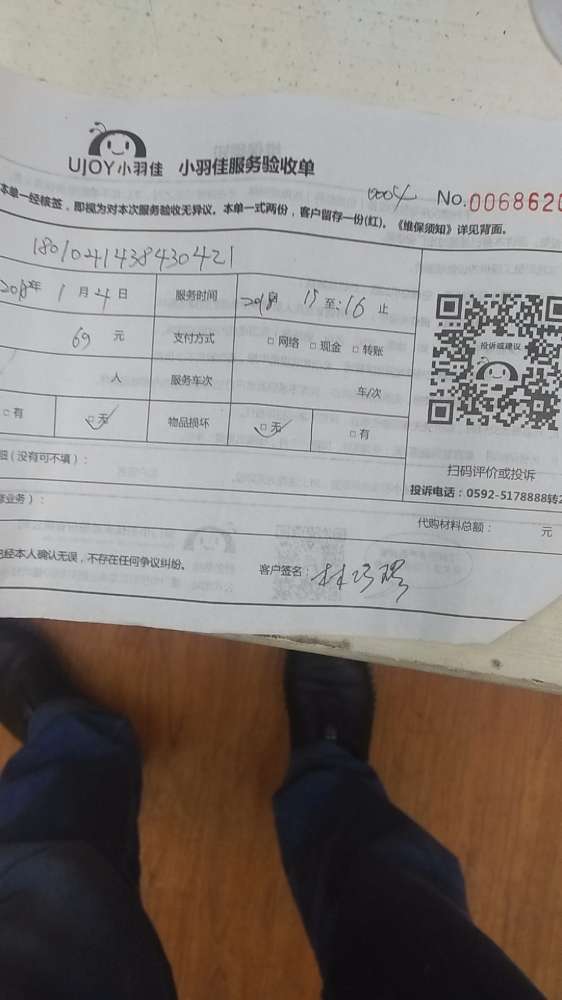 UJOY小羽佳 小羽佳服务验收单
No.0068620
本单一经核签，即视为对本次服务验收无异议。本单一式两份，客户留存一份(红)。《维保须知》详见背面。
1801041438430421
2018年 1月4日 服务时间 15至:16止
69元 支付方式 □网络 □现金 □转账
人 服务车次 车/次
□有 □无 物品损坏 □无 □有
投诉或建议
扫码评价或投诉
投诉电话：0592-5178888转2
(没有可不填)：
代购材料总额： 元
业务)：
经本人确认无误，不存在任何争议纠纷。 客户签名：